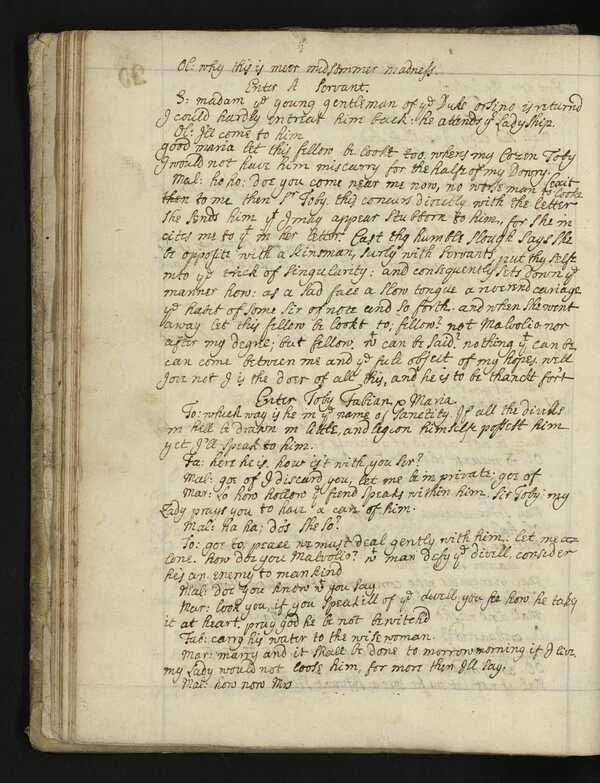 Ol: why this is meer midsommer madness.
Enter A Servant.
S: madam yᵉ young gentleman of yᵉ Duke orsino is returnd
I could hardly intreat him back: he attends yʳ Ladyship.
Ol: I'll come to him
good maria let this fellow be lookt too, wheres my Cozen Toby
I would not have him miscarry for the halfe of my Dowry.
Mal: ho ho: doe you come near me now, no worse man
then to me then Sʳ Toby. this concurs directly with the letter
She sends him yᵗ I may appear stubborn to him, for she in
cites me to yᵗ in her letter. Cast thy humble slough says she
be opposite with a kinsman, surly with servants, put thy selfe
into yᵉ trick of singularity: and consequently sets down yᵉ
manner how: as a sad face a slow tongue a reverend cariage
yᵉ habit of some sir of note and so forth. and when she went
away let this fellow be lookt to; fellow? not Malvolio nor
after my degree; but fellow, wᵗ can be said? nothing yᵗ can be
can come between me and yᵉ full object of my hopes. well
Jove not I is the doer of all this, and he is to be thanckt for't
Enter Toby Fabian, & Maria.
To: which way is he in yᵉ name of Sanctity. If all the divells
in hell be drawn in little, and legion himselfe possest him
yet I'll speak to him.
Fa: here he is, how is't with you Ser?
Mal: goe of I discard you, let me be in private: goe of
Mar: Lo how hollow yᵉ fiend speaks within him. Sir Toby: my
Lady prayes you to have a care of him.
Mal: ha ha; do's she so?
To: goe to, peace we must deal gently with him: let me a=
lone. how doe you Malvolio? wᵗ man defy yᵉ divell, consider
he's an enemy to mankind
Mal: doe you know wᵗ you say
Mar: look you, if you speak ill of yᵉ divell you see how he takes
it at heart. pray god he be not bewitchd
Fab: carry his water to the wise woman.
Mar: marry and it shall be done to morrow morning if I live
my Lady would not loose him, for more then I'll say.
Mal: how now Mʳˢ